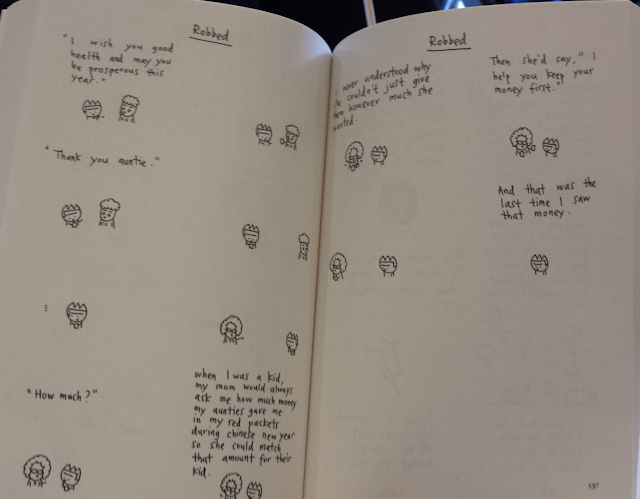 Robbed
"I wish you good
health and may you
be prosperous this
year."
"Thank you auntie."
"How much?"
when I was a kid,
my mom would always
ask me how much money
my aunties gave me
in my red packets
during chinese new year
so she could match
that amount for their
kid.
Robbed
I never understood why
she couldn't just give
them however much she
wanted.
Then she'd say, "I
help you keep your
money first."
And that was the
last time I saw
that money.
137